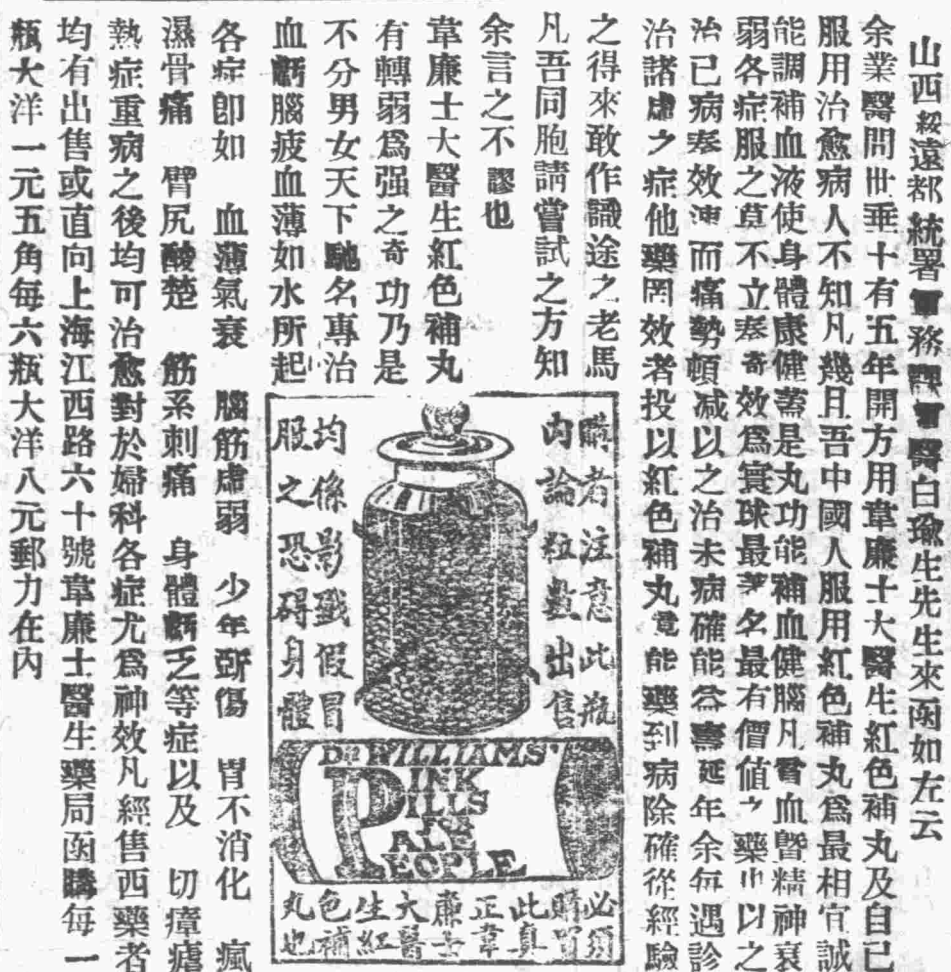 山西綏遠都統署軍務課軍醫白瑜生先生來函如左云
余業醫問世垂十有五年開方用韋廉士大醫生紅色補丸及自已
服用治愈病人不知凡幾且吾中國人服用紅色補丸爲最相宜誠
能調補血液使身體康健蓋是丸功能補血健腦凡貧血暨精神衰
弱各症服之莫不立奏奇效爲寰球最著名最有價值之藥也以之
治已病奏效速而痛勢頓减以之治未病確能益壽延年余每遇診
治諸虛之症他藥罔效者投以紅色補丸竟能藥到病除確從經驗
之得來敢作識途之老馬
凡吾同胞請嘗試之方知
余言之不謬也
韋廉士大醫生紅色補丸
有轉弱爲强之奇功乃是
不分男女天下馳名專治
血虧腦疲血薄如水所起
各症卽如 血薄氣衰 腦筋虛弱 少年斲傷 胃不消化 瘋
濕骨痛 臂尻酸楚 筋系刺痛 身體虧乏等症以及 切瘴瘧
熱症重病之後均可治愈對於婦科各症尤爲神效凡經售西藥者
均有出售或直向上海江西路六十號韋廉士醫生藥局函購每一
瓶大洋一元五角每六瓶大洋八元郵力在內
購者注意此瓶
內論粒數出售
均係影戤假冒
服之恐碍身體
DR WILLIAMS'
PINK
PILLS
FOR
PALE
PEOPLE
必須
購買
此真
正韋
廉士
大醫
生紅
色補
丸也